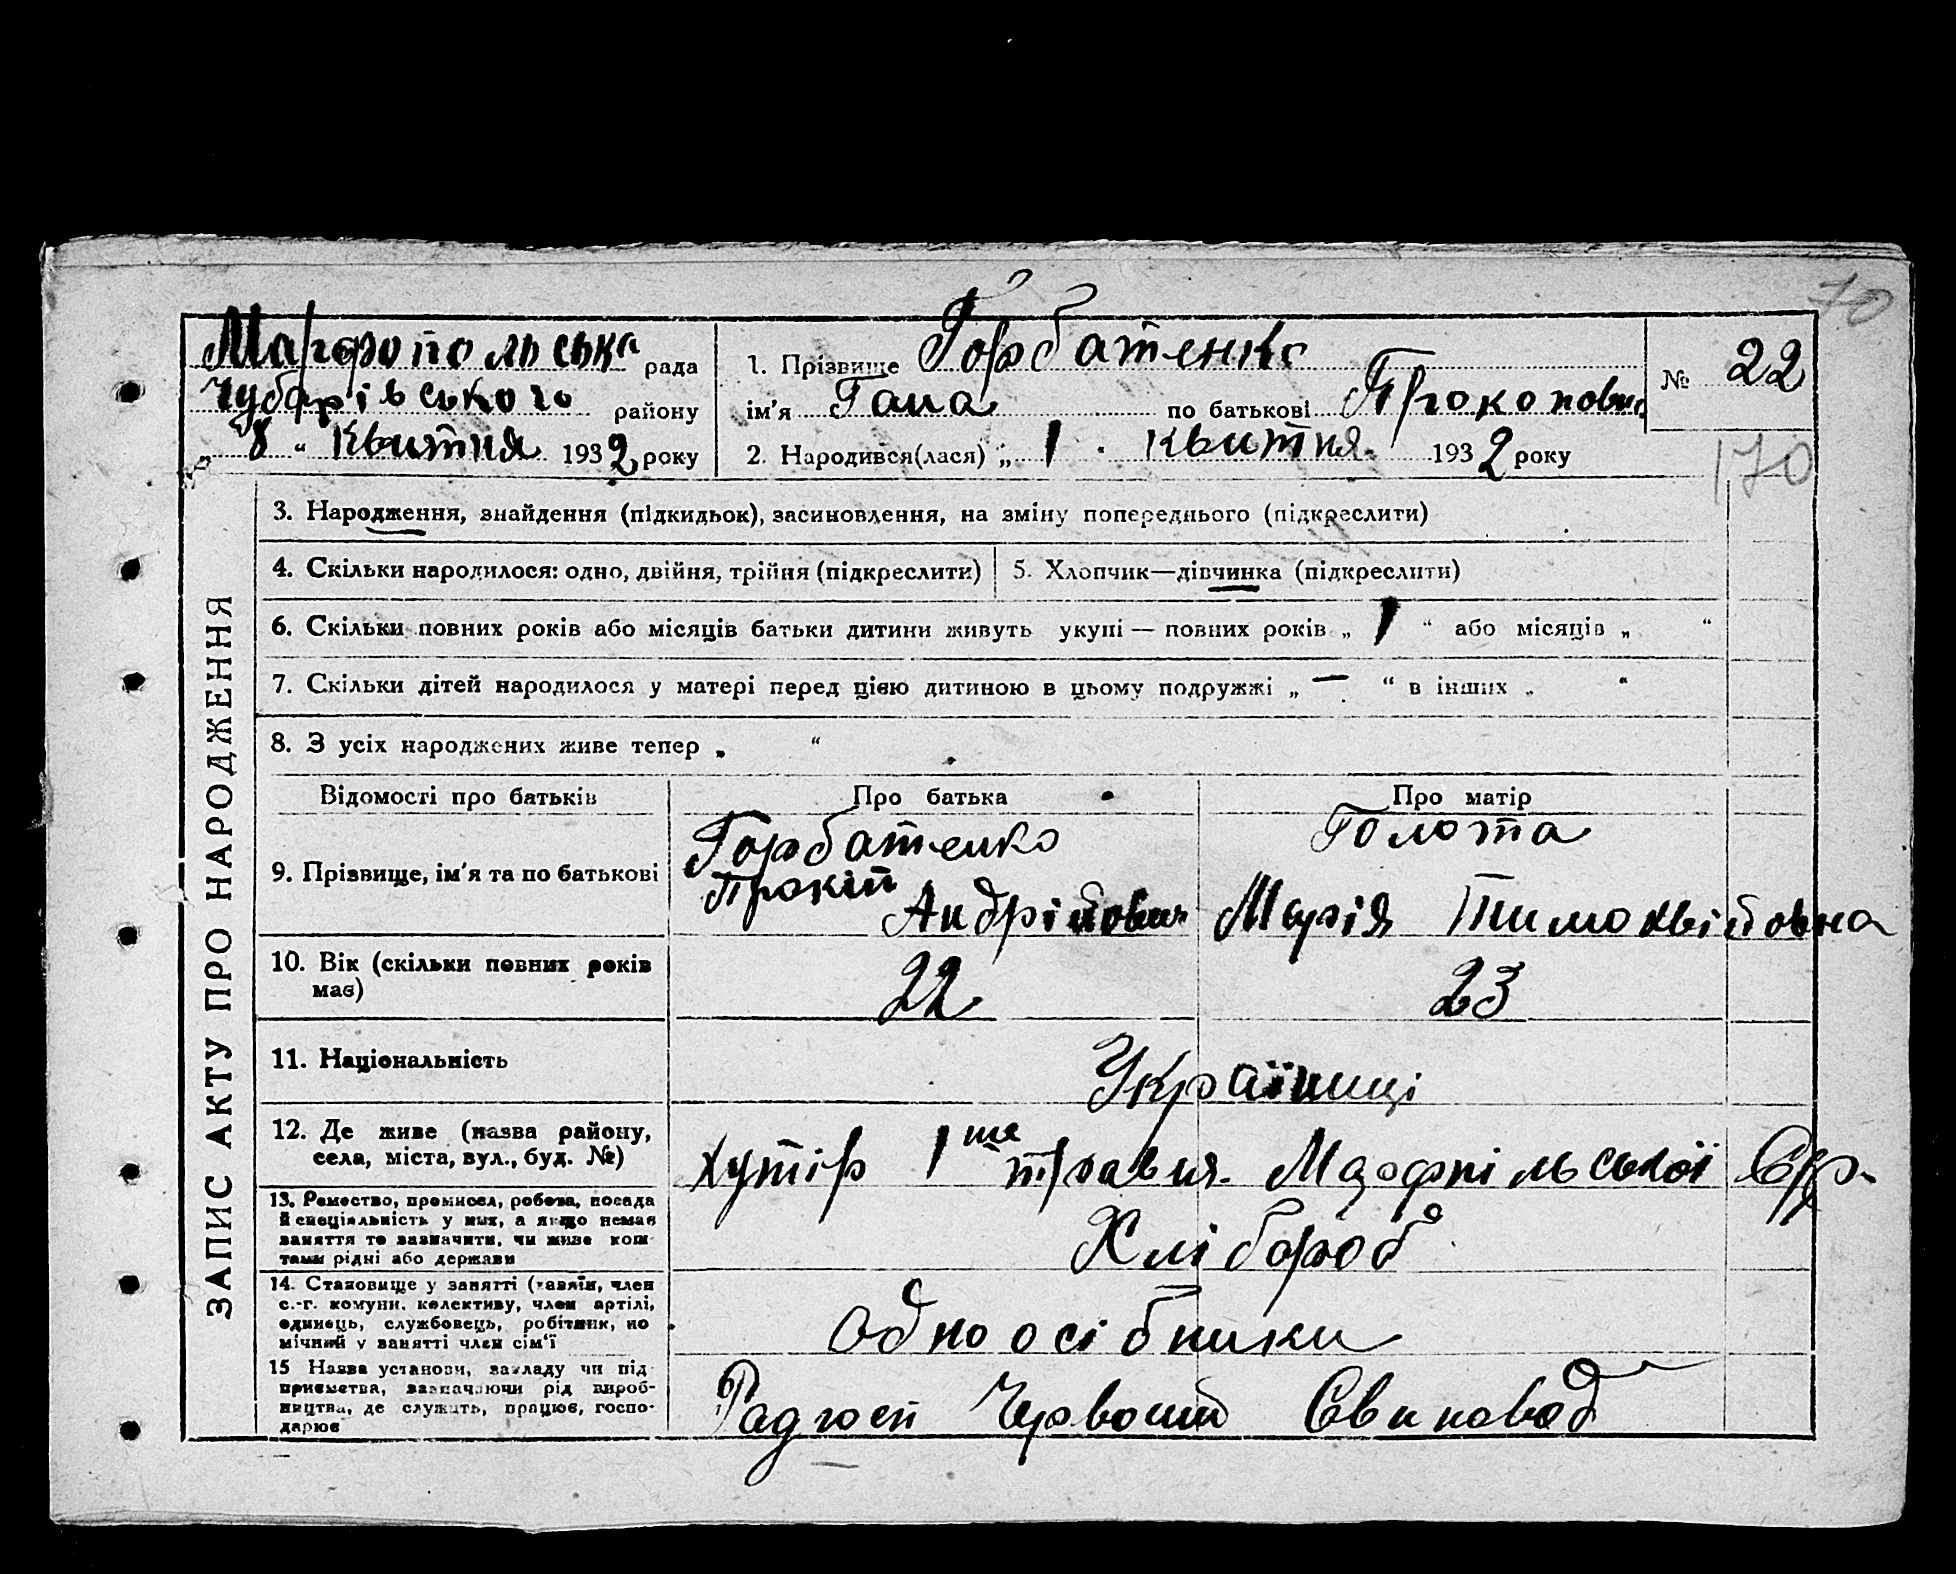 70
Марфопольська рада
Чубарівського району
„8“ Квитня 1932 року
1. Прізвище Горбатенко
ім'я Гана по батькові Прокоповна
2. Народився(лася) „1 Квитня 1932 року
№ 22
170
ЗАПИС АКТУ ПРО НАРОДЖЕННЯ
3. Народження, знайдення (підкидьок), засиновлення, на зміну попереднього (підкреслити)
4. Скільки народилося: одно, двійня, трійня (підкреслити) 5. Хлопчик—дівчинка (підкреслити)
6. Скільки повних років або місяців батьки дитини живуть укупі — повних років „1“ або місяців „ “
7. Скільки дітей народилося у матері перед цією дитиною в цьому подружжі „—“ в інших „ “
8. З усіх народжених живе тепер „ “
Відомості про батьків Про батька Про матір
9. Прізвище, ім'я та по батькові
Горбатенко
Прокіп
Андрійович
Голота
Марія Тимохвійовна
10. Вік (скільки повних років
має)
22 23
11. Національність
Українці
12. Де живе (назва району,
села, міста, вул., буд. №)
хутір 1ше травня Марфпільської С/р.
13. Ремество, промисел, робота, посада
й спеціяльність у них, а якщо немає
заняття то зазначити, чи живе кош-
тами рідні або держави
Хлібороб
14. Становище у занятті (хазяїн, член
с.-г. комуни, колективу, член артілі,
одинець, службовець, робітник, по
мічний у занятті член сім'ї
одноосібники
15 Назва установи, закладу чи під-
приємства, зазначаючи рід вироб-
ництва, де служить, працює, госпо-
дарює
Радгосп Червоний Свиновод